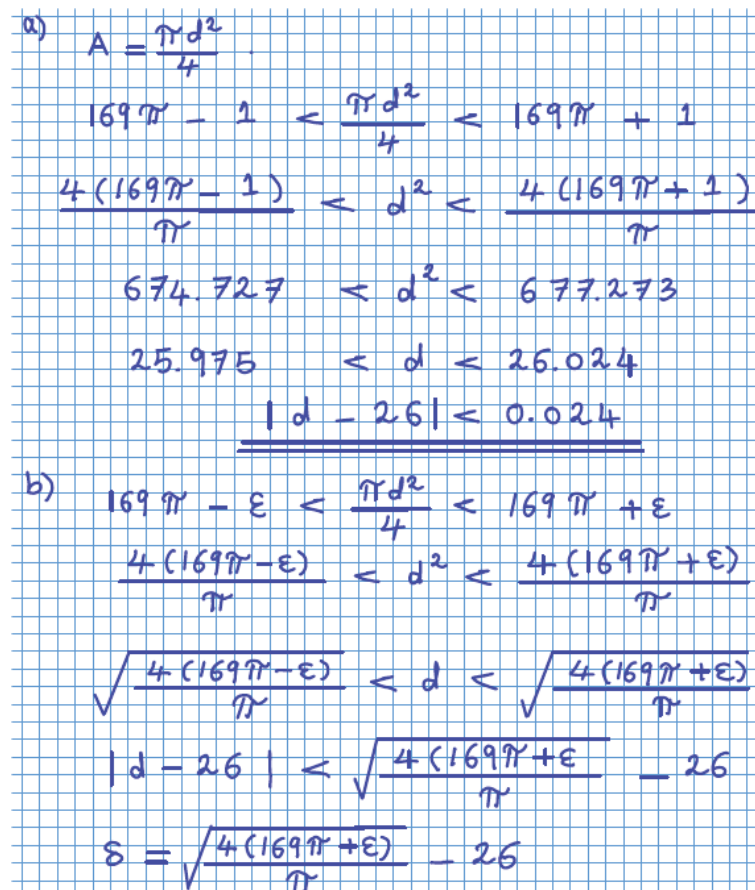 a) A = πd²/4 .
169π - 1 < πd²/4 < 169π + 1
4(169π - 1)/π < d² < 4(169π + 1)/π
674.727 < d² < 677.273
25.975 < d < 26.024
|d - 26| < 0.024
b) 169π - ε < πd²/4 < 169π + ε
4(169π - ε)/π < d² < 4(169π + ε)/π
√(4(169π - ε)/π) < d < √(4(169π + ε)/π)
|d - 26| < √(4(169π + ε/π) - 26
δ = √(4(169π + ε)/π) - 26